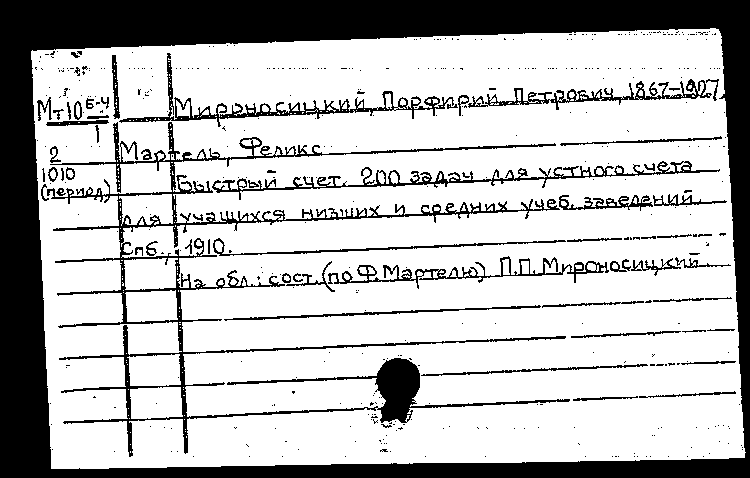 Мт10 Б-4/1 Мироносицкий, Порфирий Петрович, 1867-1927
2 Мартель, Феликс
1010 Быстрый счет. 200 задач для устного счета
(период)
для учащихся низших и средних учеб. заведений.
Спб., 1910.
На обл.: сост. (по Ф. Мартелю) П.П. Мироносицкий.